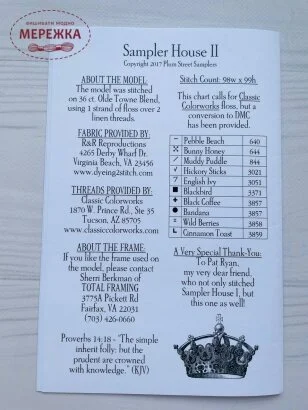 ВИШИВАТИ МОДНО
МЕРЕЖКА
Sampler House II
Copyright 2017 Plum Street Samplers
ABOUT THE MODEL
The model was stitched
on 36 ct. Olde Towne Blend,
using 1 strand of floss over 2
linen threads.
FABRIC PROVIDED BY:
R&R Reproductions
4265 Derby Wharf Dr.
Virginia Beach, VA 23456
www.dyeing2stitch.com
THREADS PROVIDED BY:
Classic Colorworks
1870 W. Prince Rd., Ste 35
Tucson, AZ 85705
www.classiccolorworks.com
ABOUT THE FRAME:
If you like the frame used on
the model, please contact
Sherri Berkman of
TOTAL FRAMING
3775A Pickett Rd
Fairfax, VA 22031
(703) 426-0660
Proverbs 14:18 - "The simple
inherit folly: but the
prudent are crowned
with knowledge." (KJV)
Stitch Count: 98w x 99h
This chart calls for Classic
Colorworks floss, but a
conversion to DMC
has been provided.
Pebble Beach 640
Bunny Honey 644
Muddy Puddle 844
Hickory Sticks 3021
7 English Ivy 3051
Blackbird 3371
Black Coffee 3857
Bandana 3857
Wild Berries 3858
L Cinnamon Toast 3859
A Very Special Thank-You:
To Pat Ryan,
my very dear friend,
who not only stitched
Sampler House I, but
this one as well!